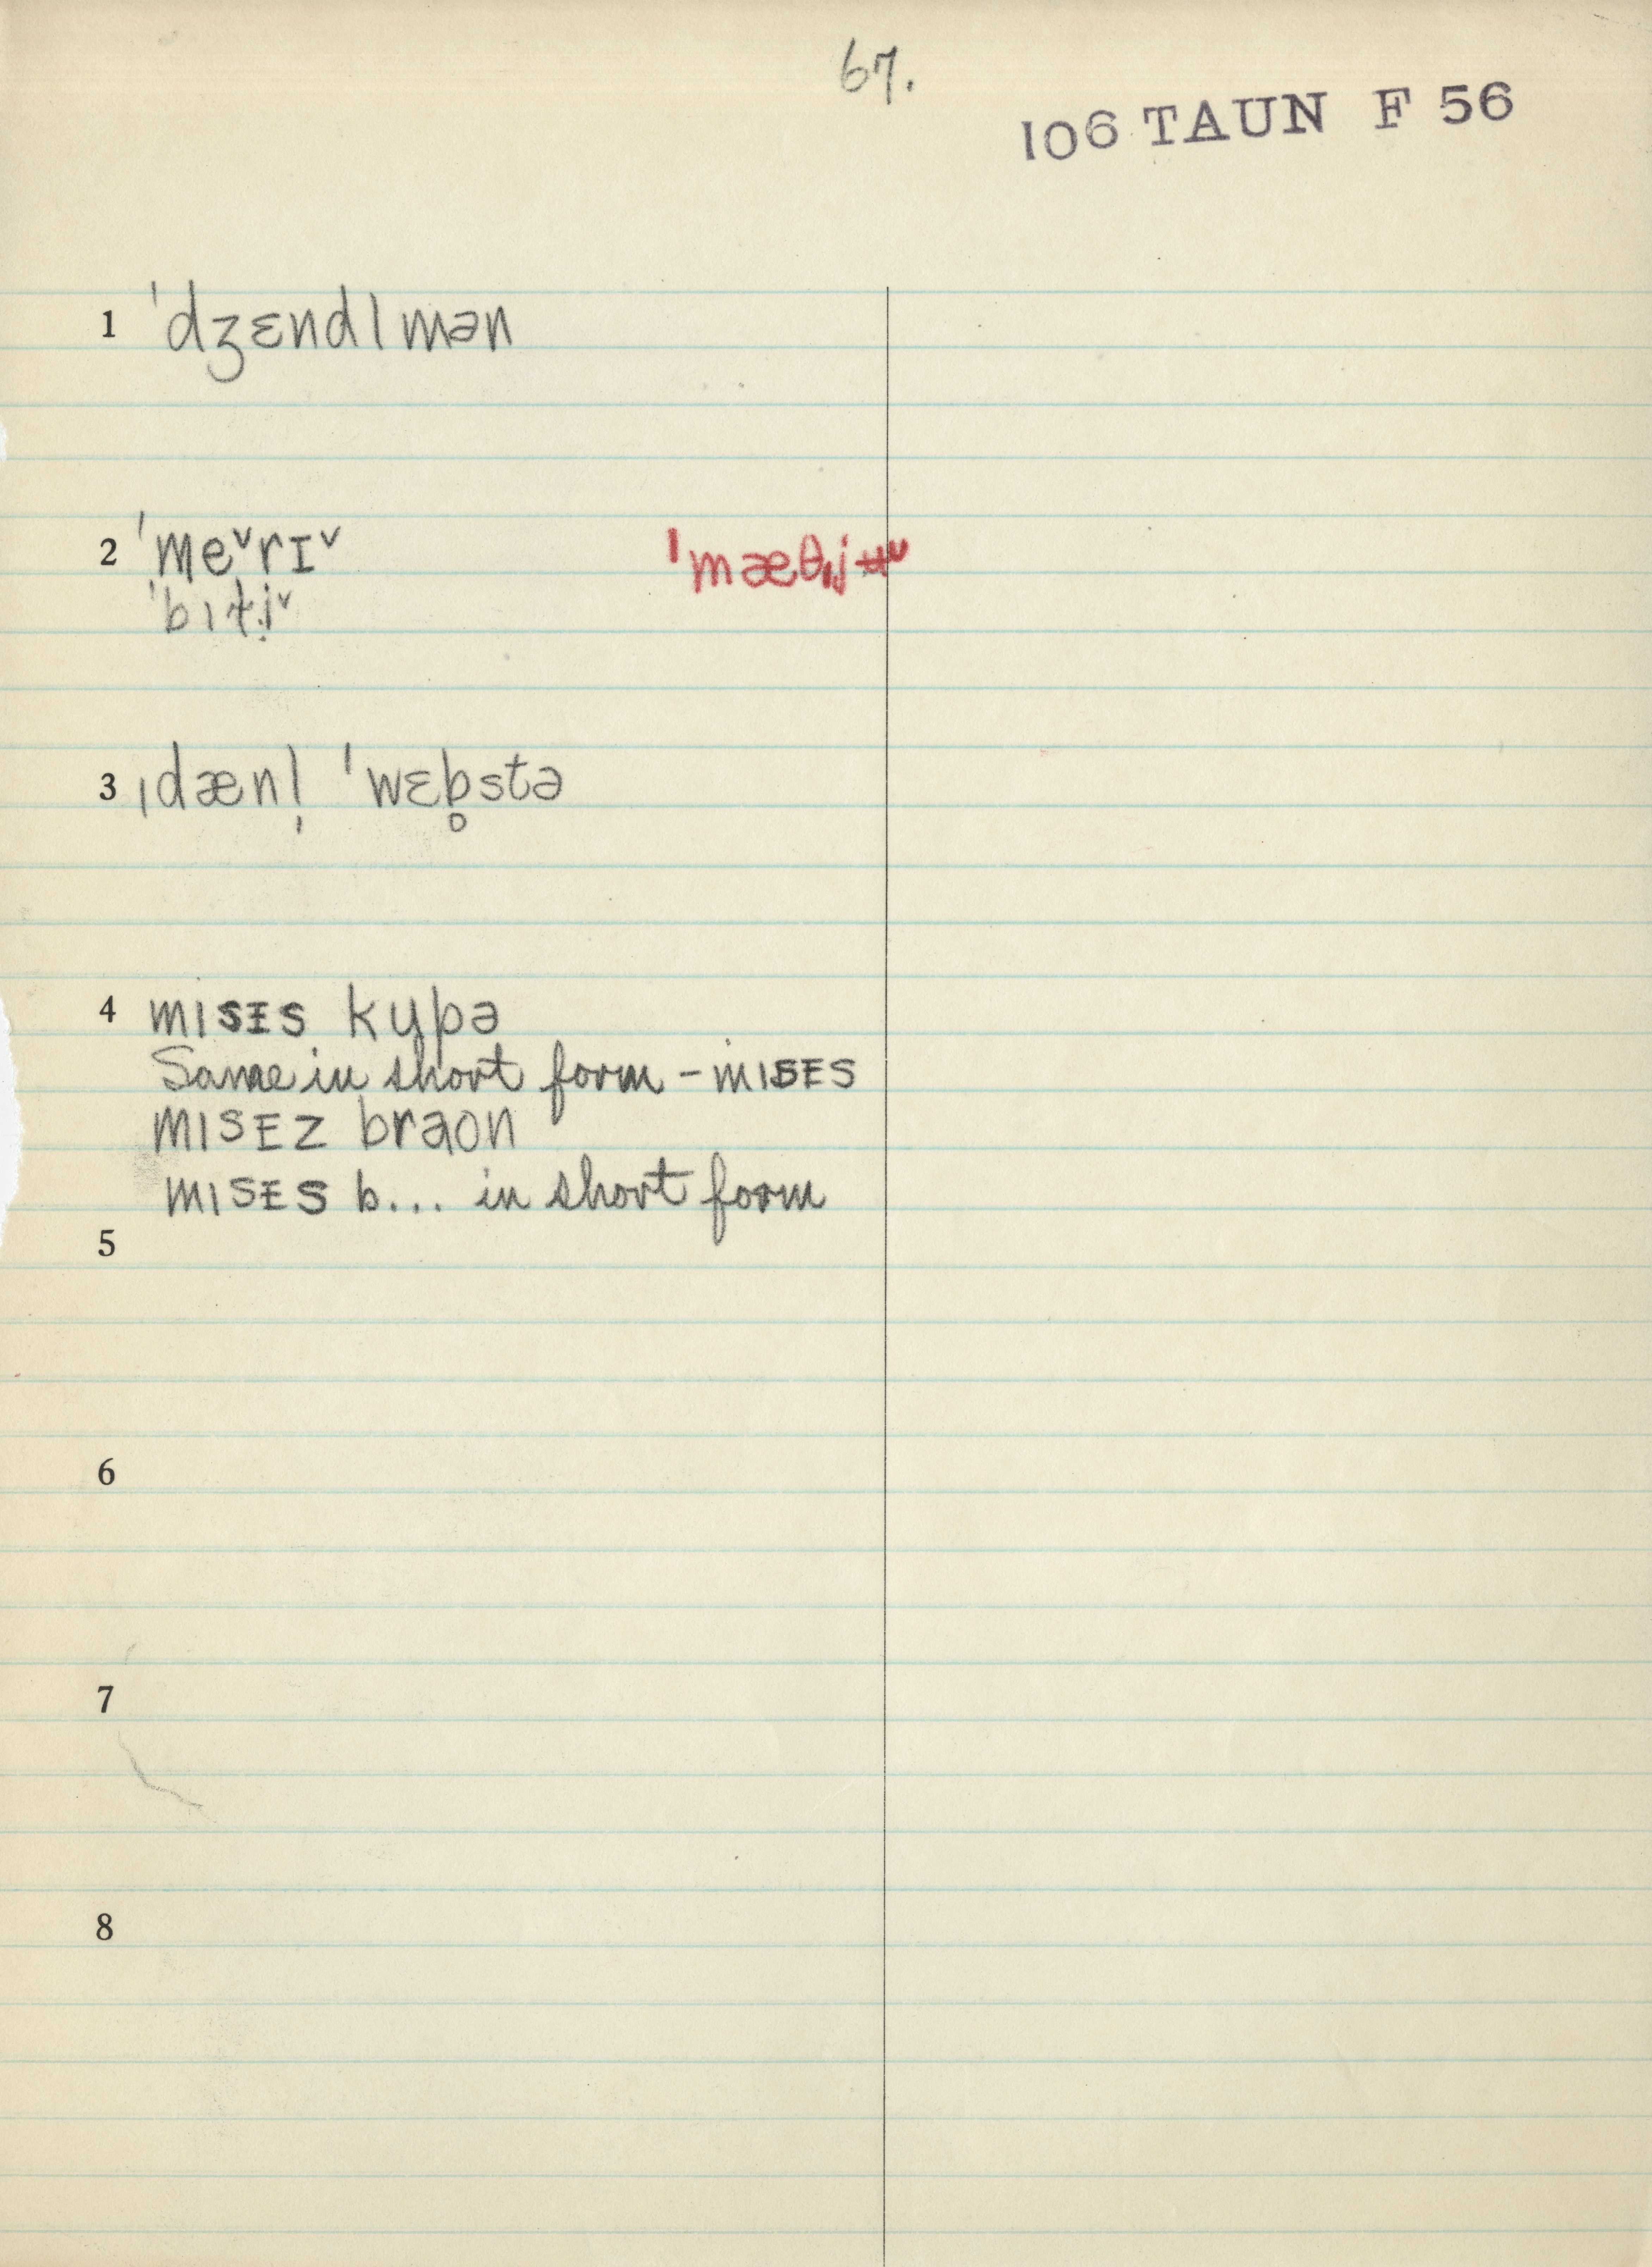 67.
106 TAUN F 56
1 ˈdʒɛndlmən
2 ˈmeˇrɪˇ
ˈbɪt̬i̞ˇ
3 ˌdænl̩ ˈwɛb̥stə
4 mɪsɪs kypə
Same in short form - mɪsɪs
mɪsɪz braon
mɪsɪs b... in short form
5
6
7
8